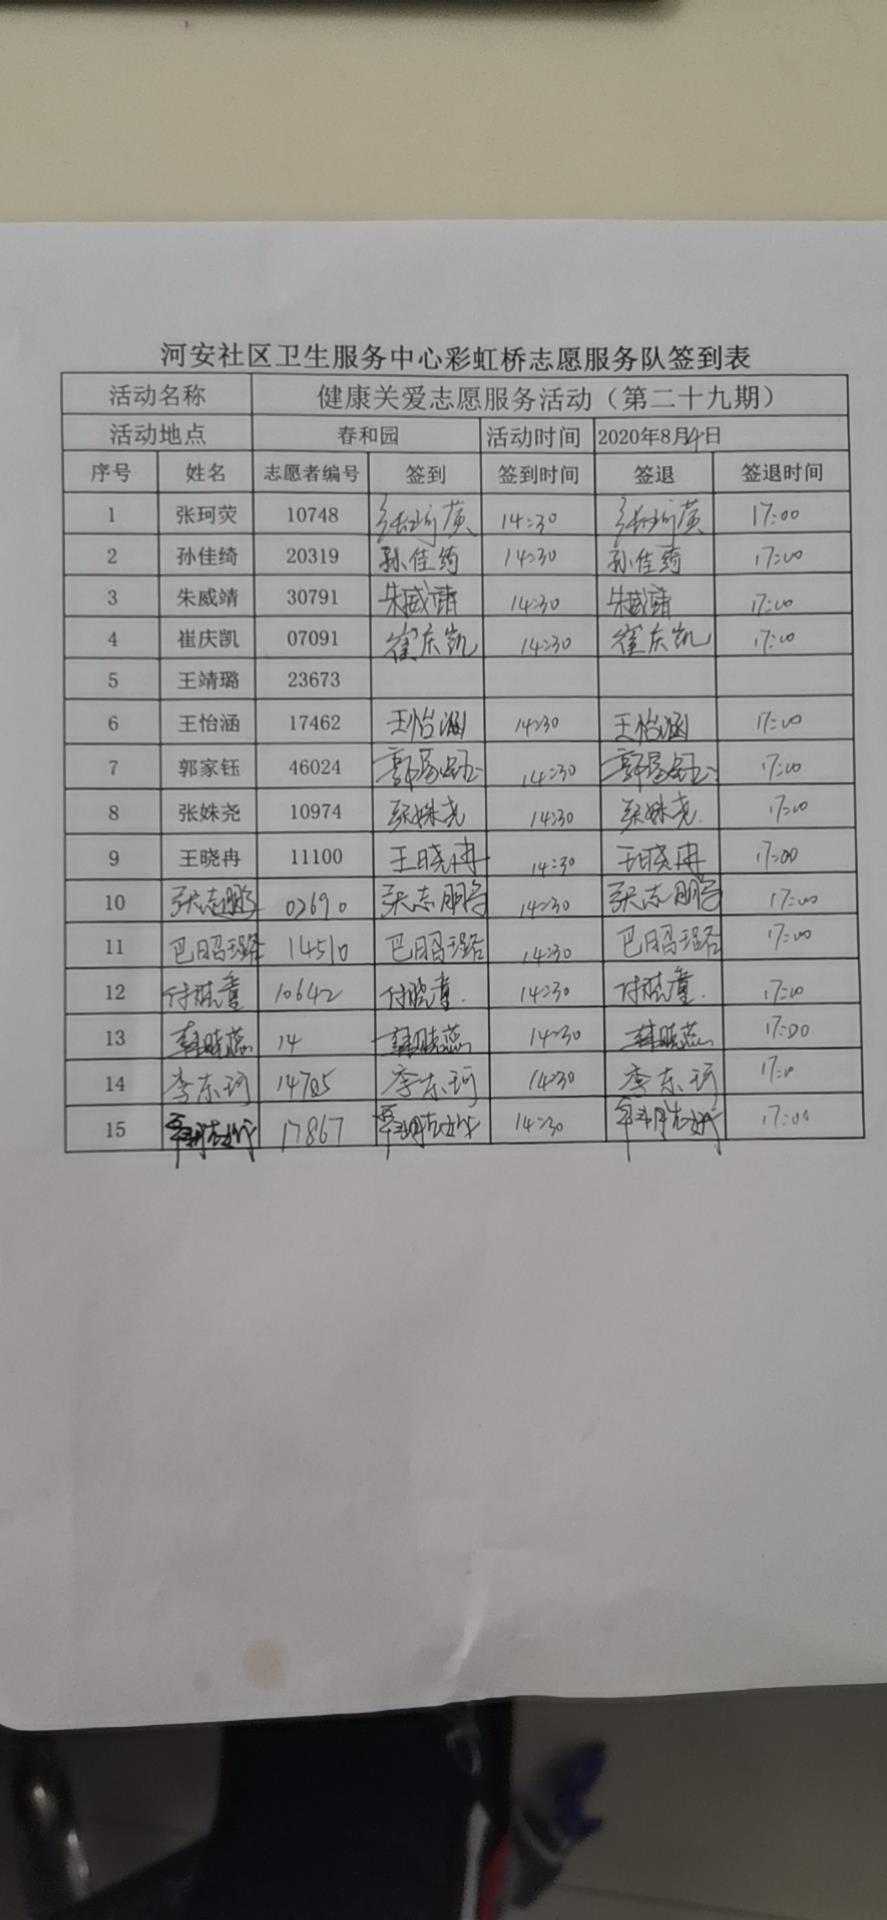 河安社区卫生服务中心彩虹桥志愿服务队签到表
活动名称 健康关爱志愿服务活动（第二十九期）
活动地点 春和园 活动时间 2020年8月4日
序号 姓名 志愿者编号 签到 签到时间 签退 签退时间
1 张珂荧 10748 张珂荧 14:30 张珂荧 17:00
2 孙佳绮 20319 孙佳绮 14:30 孙佳绮 17:00
3 朱威靖 30791 朱威靖 14:30 朱威靖 17:00
4 崔庆凯 07091 崔庆凯 14:30 崔庆凯 17:00
5 王靖璐 23673
6 王怡涵 17462 王怡涵 14:30 王怡涵 17:00
7 郭家钰 46024 郭家钰 14:30 郭家钰 17:00
8 张姝尧 10974 张姝尧 14:30 张姝尧 17:00
9 王晓冉 11100 王晓冉 14:30 王晓冉 17:00
10 张志鹏 02690 张志鹏 14:30 张志鹏 17:00
11 巴昭璐 14510 巴昭璐 14:30 巴昭璐 17:00
12 付晓童 10642 付晓童 14:30 付晓童 17:00
13 韩晓蕊 14 韩晓蕊 14:30 韩晓蕊 17:00
14 李东珂 14705 李东珂 14:30 李东珂 17:0
15 17867 14:30 17:00